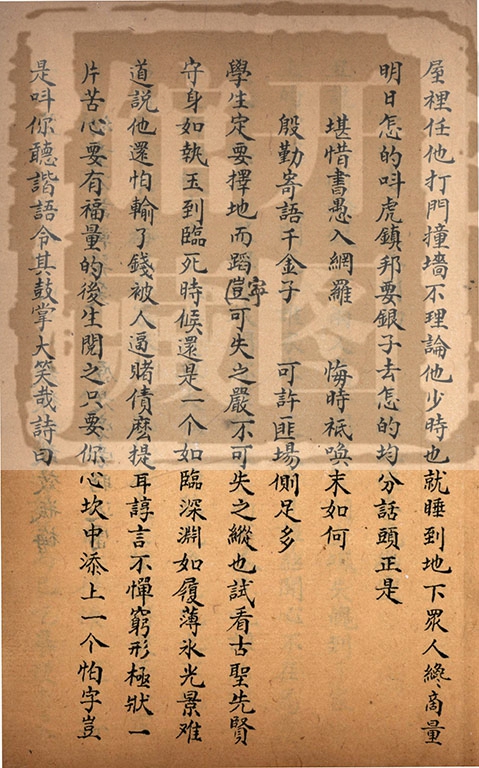 屋裡任他打門撞墻不理論他少時也就睡到地下眾人纔商量
明日怎的呌虎鎮邦要銀子去怎的均分話頭正是
堪惜書愚入網羅 悔時祇喚末如何
殷勤寄語千金子 可許匪場側足多
學生定要擇地而蹈寧豈可失之嚴不可失之縱也試看古聖先賢
守身如執玉到臨死時候還是一个如臨深淵如履薄氷光景难
道説他還怕輸了錢被人逼賭債麽提耳諄言不憚窮形極狀一
片苦心要有福量的後生閱之只要你心坎中添上一个怕字豈
是呌你聽諧語令其鼓掌大笑哉詩曰